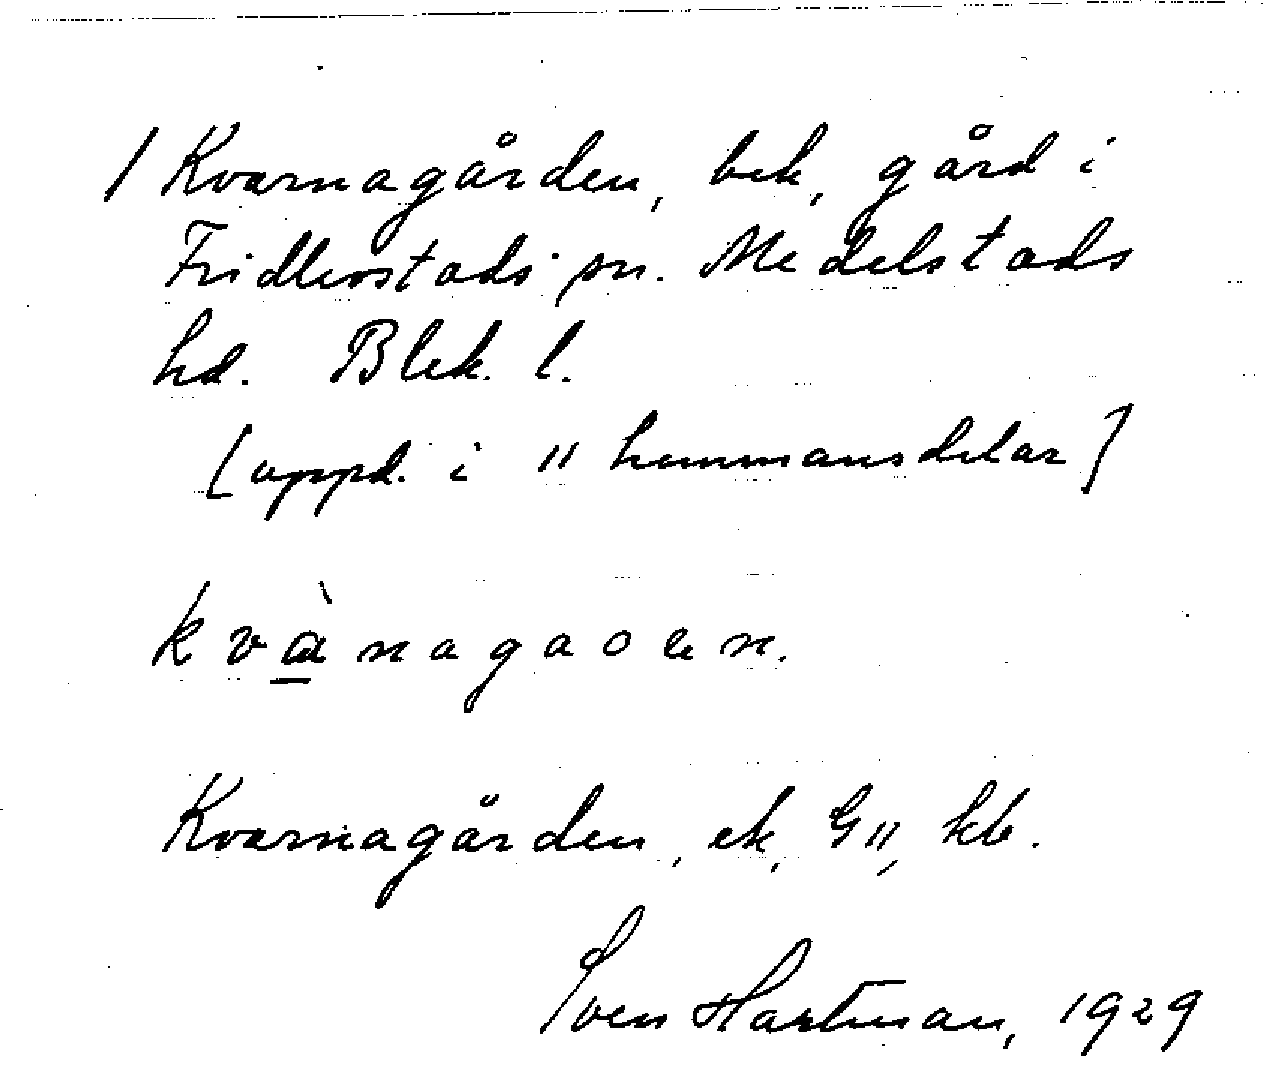 / Kvarnagården, bek, gård i
Fridlevstads sn. Medelstads
hd. Blek. l.
[uppd. i 11 hemmansdelar]
kvànagaoen.
Kvarnagården, ek, G11, kb.
Sven Hartman, 1929